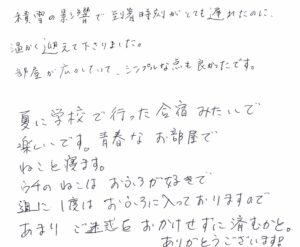 積雪の影響で到着時刻がとても遅れたのに、
温かく迎えて下さりました。
部屋が広々していて、シンプルな点も良かったです。
夏に学校で行った合宿みたいで
楽しいです。青春なお部屋で
ねこと寝ます。
ウチのねこはおふろが好きで
週に1度はおふろに入っておりますので
あまりご迷惑をおかけせずに済むかと。
ありがとうございます!!